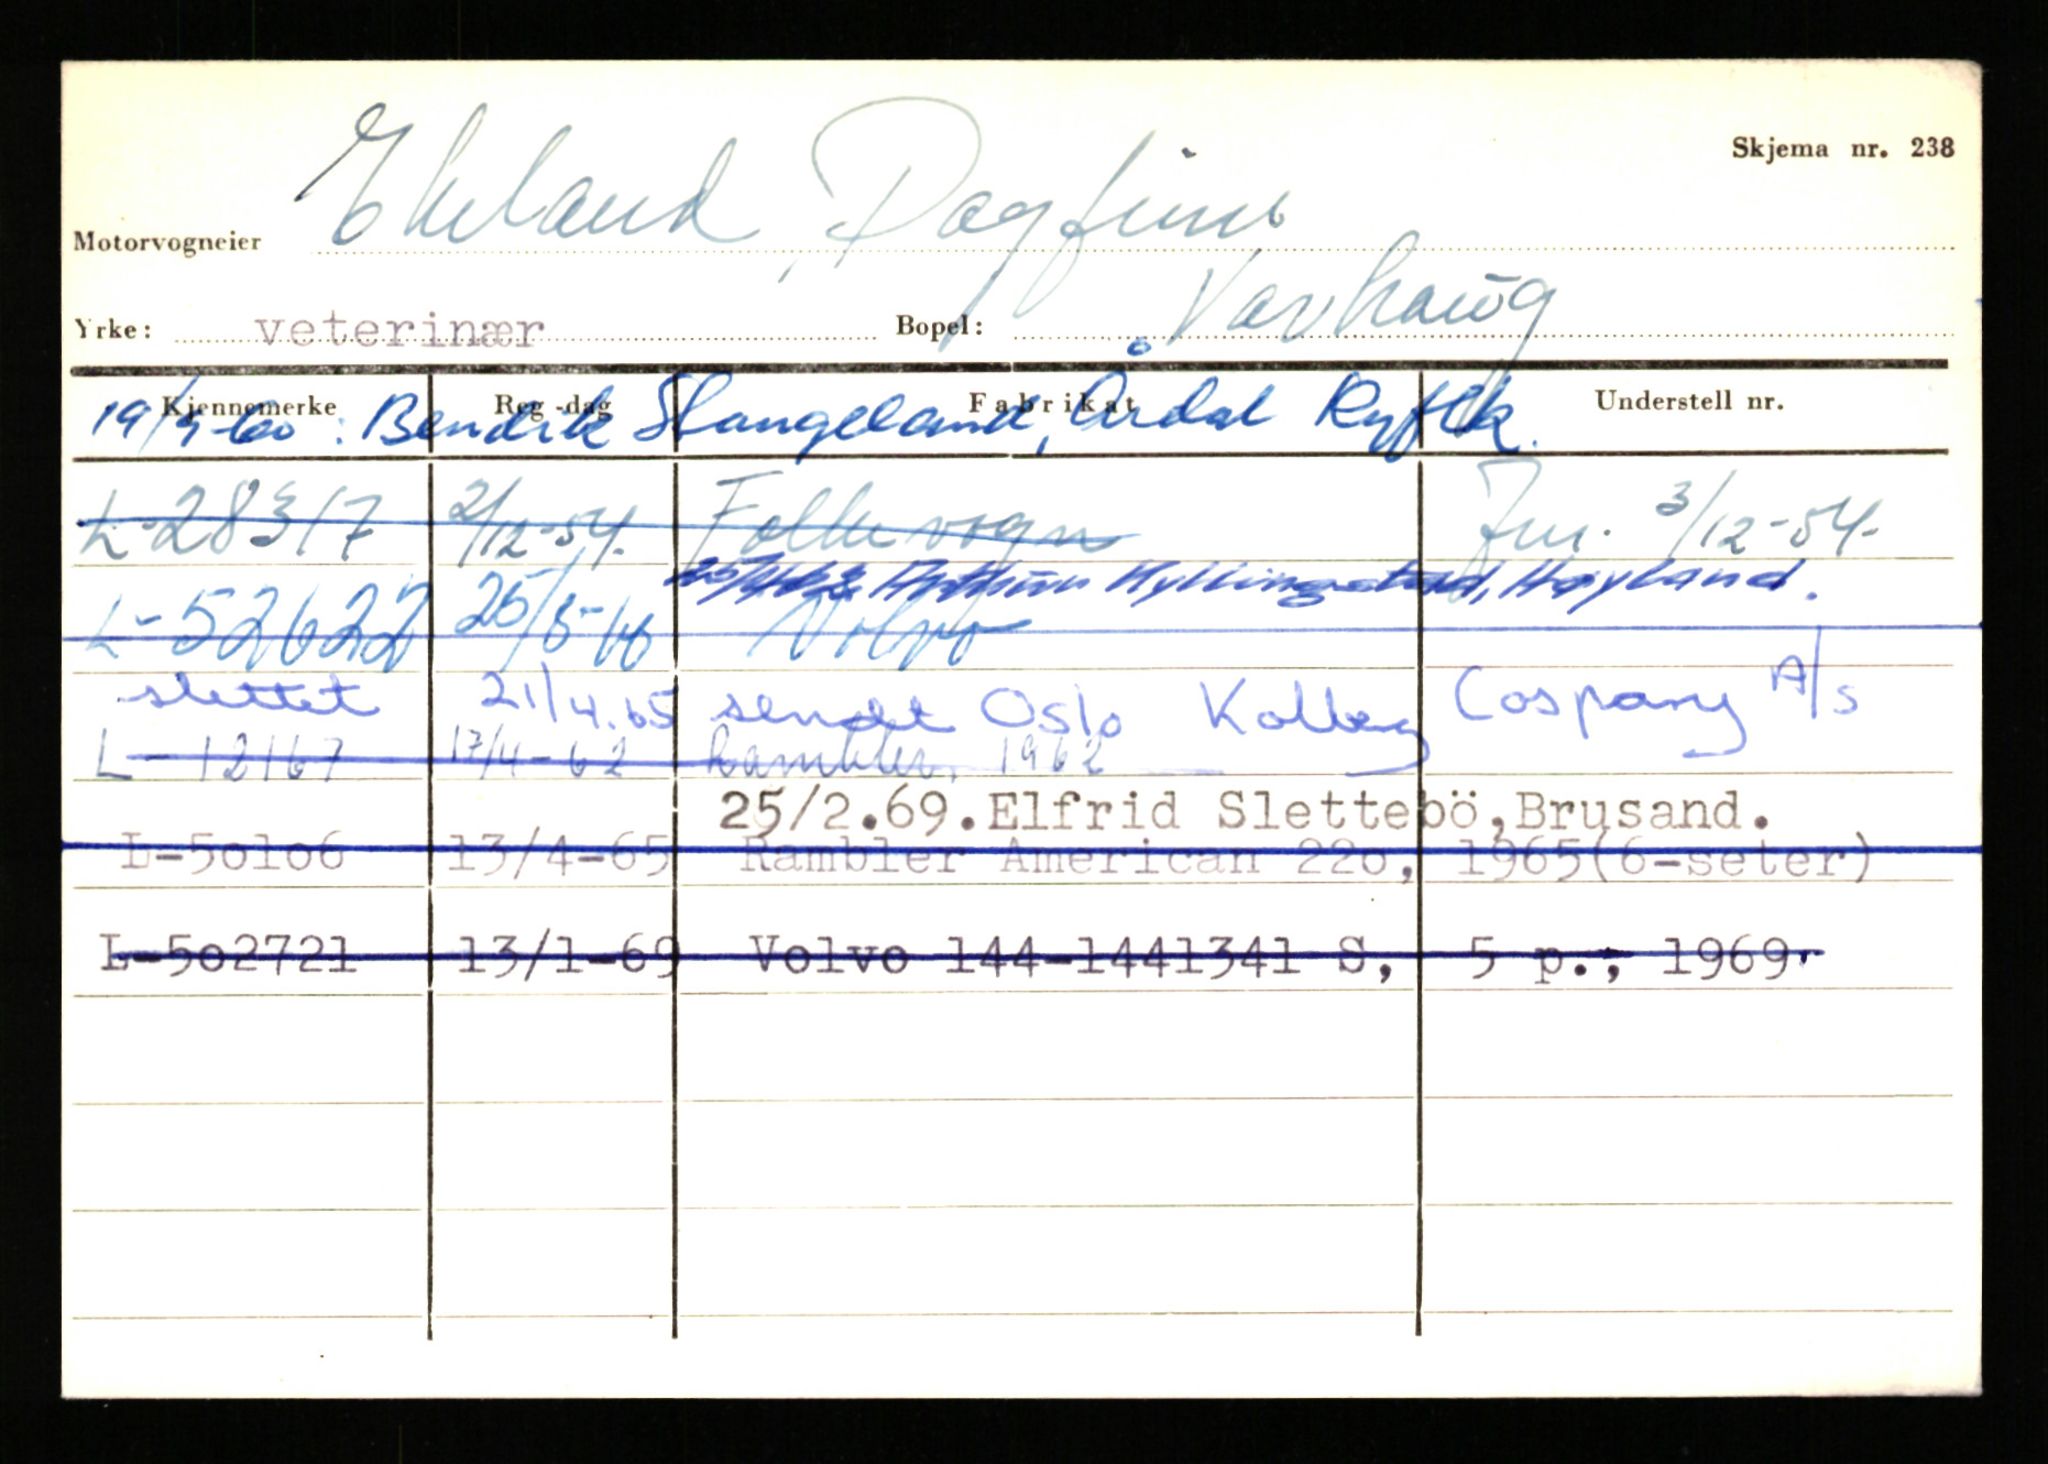 Skjema nr. 238
Motorvogneier Ekeland, Dagfinn
Yrke: veterinær Bopel: Varhaug
Kjennemerke Reg.-dag Fabrikat Understell nr.
19/9-60: Bendik Stangeland, Årdal Ryflk.
L-28317 2/12-54. Folkevogn 3/12-54.
Arthur Hyllingstad, Høyland.
L-52622 Volvo
slettet 21/4.65 sendt Oslo Kolberg Cospany A/s
L-12167 17/4-62 Rambler, 1962
25/2.69.Elfrid Slettebö,Brusand.
L-50106 13/4-65 Rambler American 220, 1965(6-seter)
L-502721 13/1-69 Volvo 144-1441341 S, 5 p., 1969.